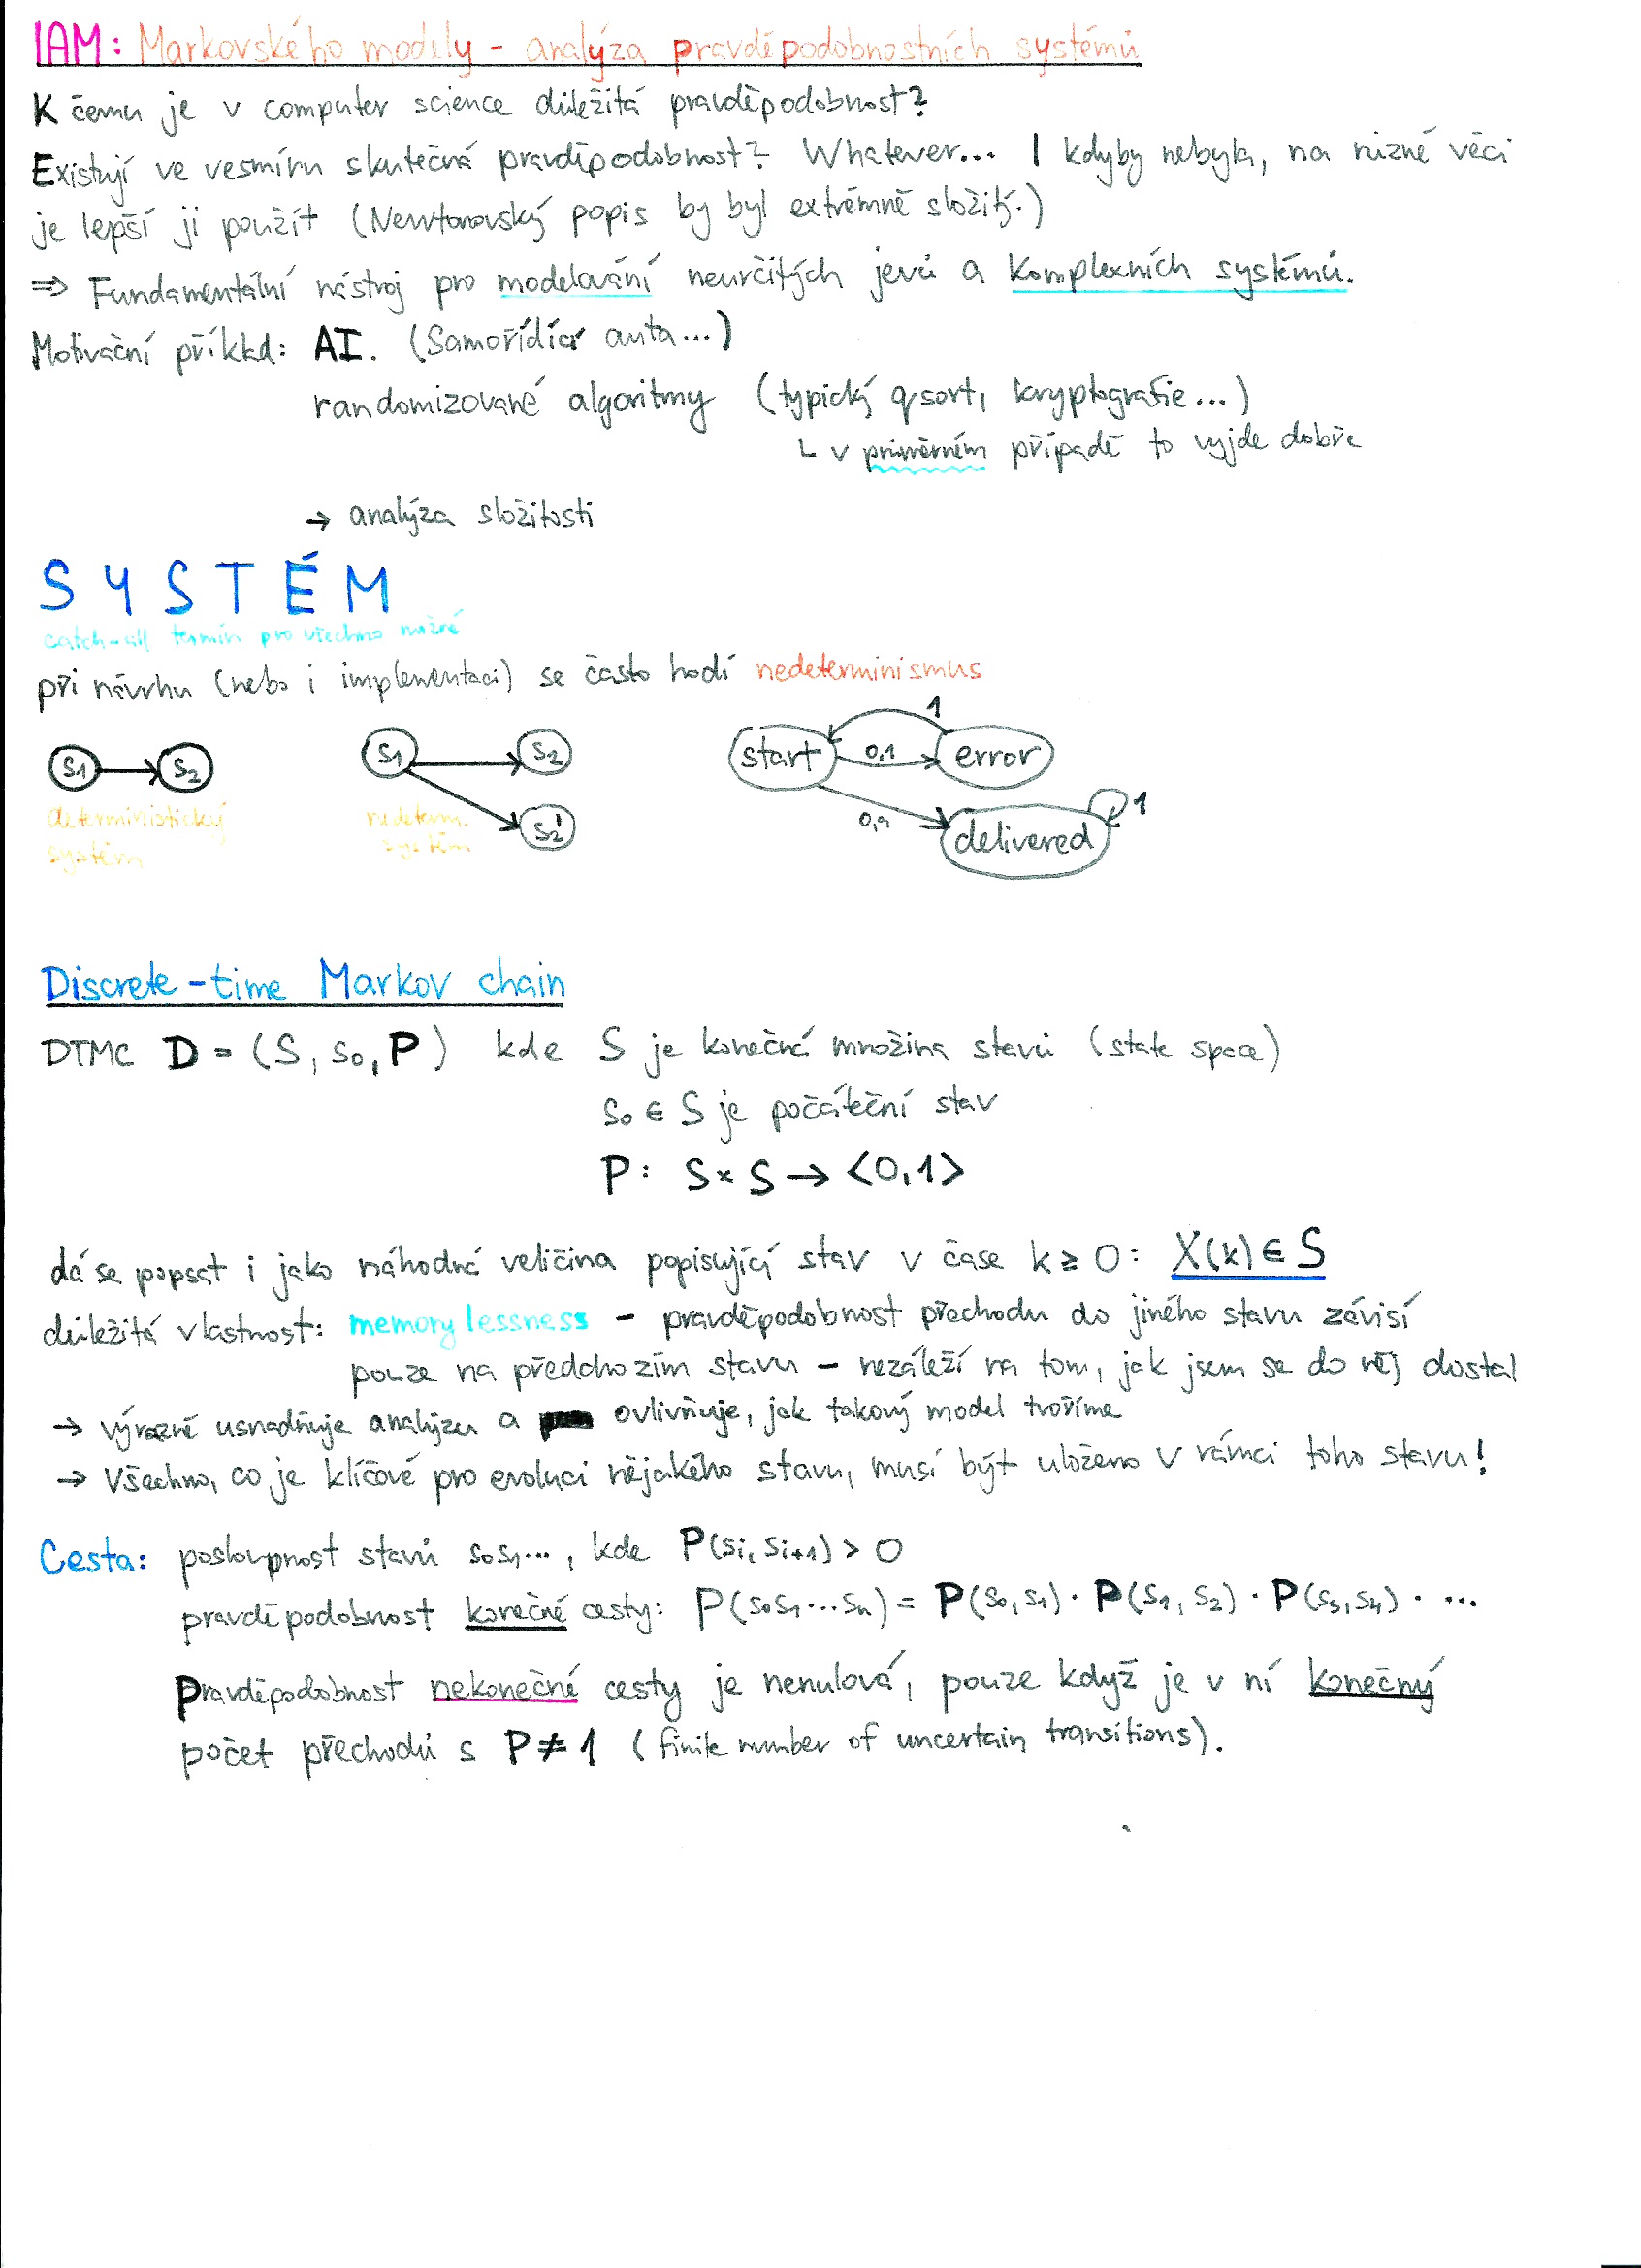 IAM: Markovského modely - analýza pravděpodobnostních systémů
K čemu je v computer science důležitá pravděpodobnost?
Existují ve vesmíru skutečná pravděpodobnost? Whatever... I kdyby nebyla, na různé věci
je lepší ji použít (Newtonovský popis by byl extrémně složitý.)
⇒ Fundamentální nástroj pro modelování neurčitých jevů a komplexních systémů.
Motivační příklad: AI. (Samořídící auta...)
randomizované algoritmy (typický qsort, kryptografie...)
└ v průměrném případě to vyjde dobře
→ analýza složitosti
SYSTÉM
catch-all termín pro všechno možné
při návrhu (nebo i implementaci) se často hodí nedeterminismus
S1 S2 S1 S2 start 0,1 error 1
deterministický systém nedeterm. systém S2' 0,9 delivered 1
Discrete-time Markov chain
DTMC D = (S, s0, P) kde S je konečná množina stavů (state space)
s0 ∈ S je počáteční stav
P: S × S → <0,1>
dá se popsat i jako náhodná veličina popisující stav v čase k ≥ 0: X(k) ∈ S
důležitá vlastnost: memorylessness - pravděpodobnost přechodu do jiného stavu závisí
pouze na předchozím stavu - nezáleží na tom, jak jsem se do něj dostal
→ výrazně usnadňuje analýzu a ovlivňuje, jak takový model tvoříme
→ Všechno, co je klíčové pro evoluci nějakého stavu, musí být uloženo v rámci toho stavu!
Cesta: posloupnost stavů s0s1..., kde P(si, si+1) > 0
pravděpodobnost konečné cesty: P(s0s1...sn) = P(s0,s1) · P(s1,s2) · P(s3,s4) · ...
Pravděpodobnost nekonečné cesty je nenulová, pouze když je v ní konečný
počet přechodů s P≠1 (finite number of uncertain transitions).